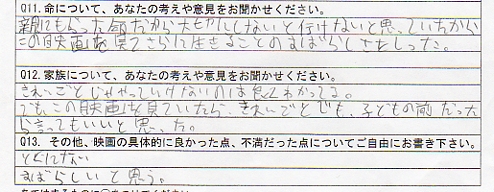 Q11. 命について、あなたの考えや意見をお聞かせください。
親にもらった命だから大切にしないと行けないと思っていたから
この映画を見てさらに生きることのすばらしさをしった。
Q12. 家族について、あなたの考えや意見をお聞かせください。
きれいごとじゃやっていけないのは良くわかってる。
でも、この映画を見ていたら、きれいごとでも、子どもの前だった
ら言ってもいいと思った。
Q13. その他、映画の具体的に良かった点、不満だった点についてご自由にお書き下さい。
とくにない
すばらしいと思う。